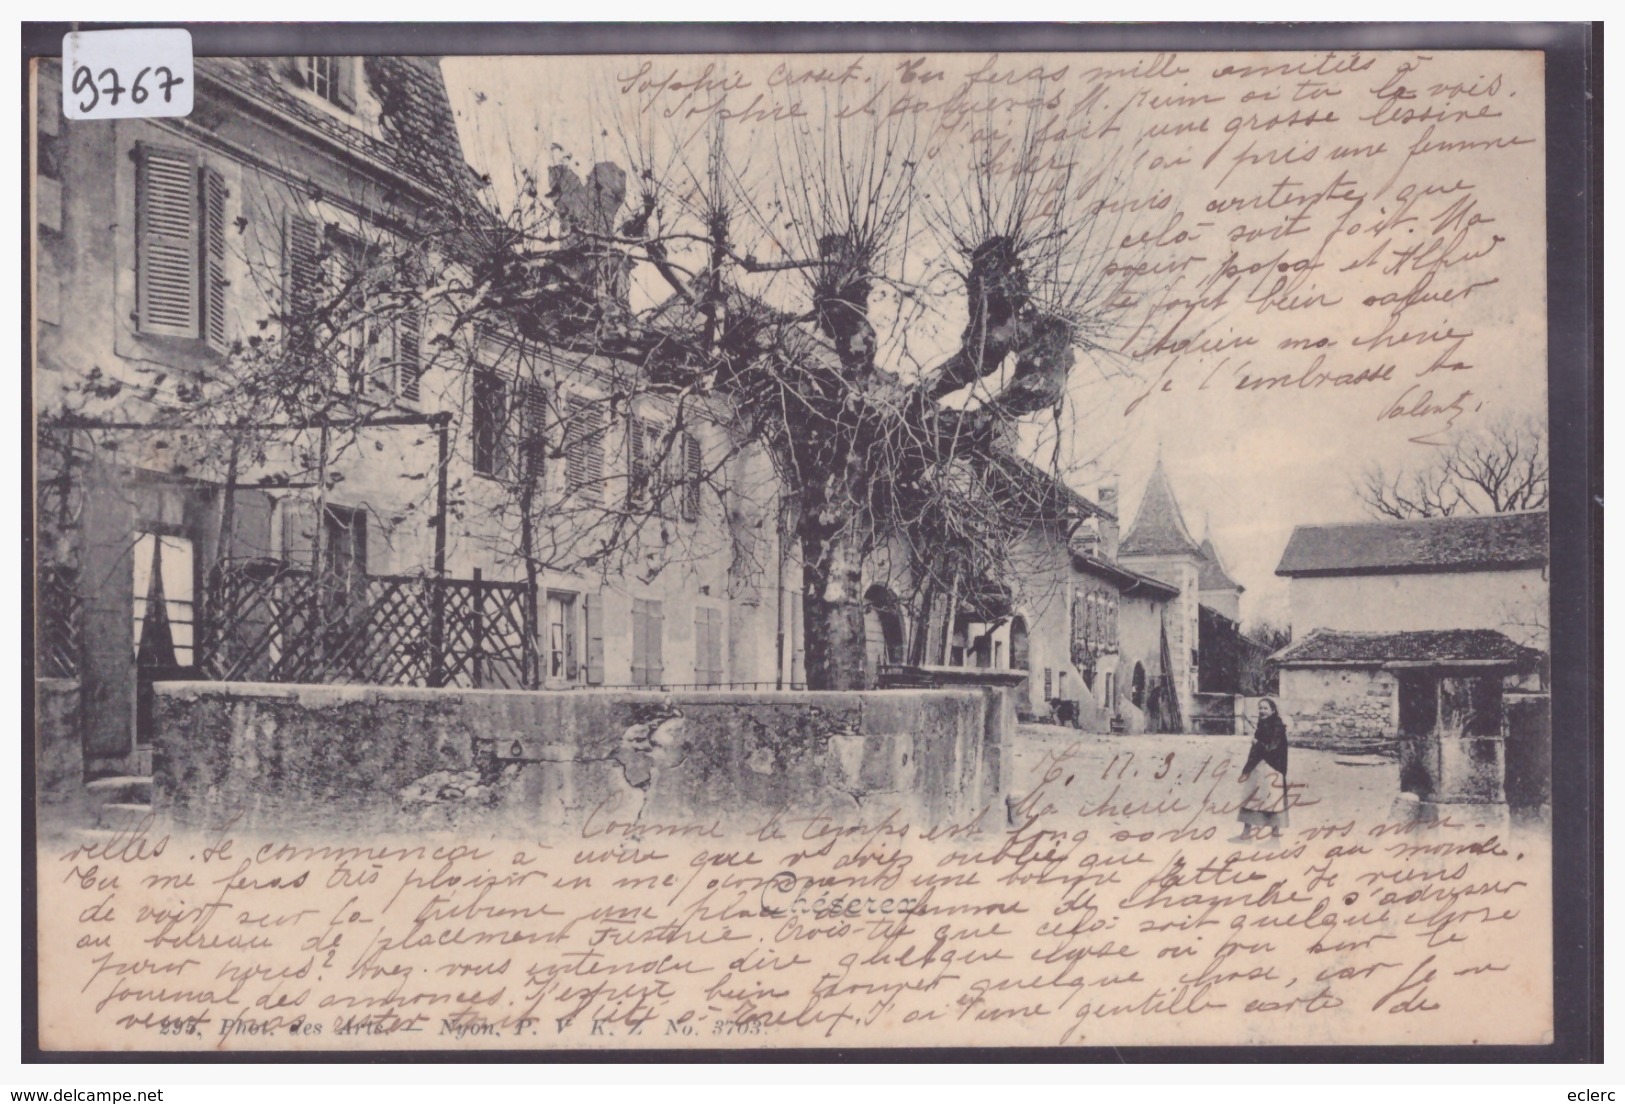 9767
Sophie Croset. Tu feras mille amitiés à
Sophie et salueras M. si tu le vois.
J'ai fait une grosse lessive
hier j'ai pris une femme
Je suis contente que
celà soit fait. Ma
soeur papa et
te font bien saluer
Adieu ma cherie
Je t'embrasse ta
Valent.
T. 17.3.1902
Ma cherie petite
Comme le temps est long sans de vos nou-
velles. Je commençai à croire que v's aviez oubliée que je suis au monde.
Tu me feras très plaisir en me donnant une longue lettre. Je viens
de voir sur la tribune une place de femme de chambre s'adresser
au bureau de placement Crois-tu que celà soit quelque chose
pour nous? Avez-vous entendu dire quelque chose ou vu sur le
journal des annonces. J'espère bien trouver quelque chose, car je ne
veux pas rester tout l'été à Trélex. J'ai une gentille carte de
Chéserex
295, Phot. des Arts. — Nyon, P. V. K. Z. No. 3703.
www.delcampe.net
eclerc